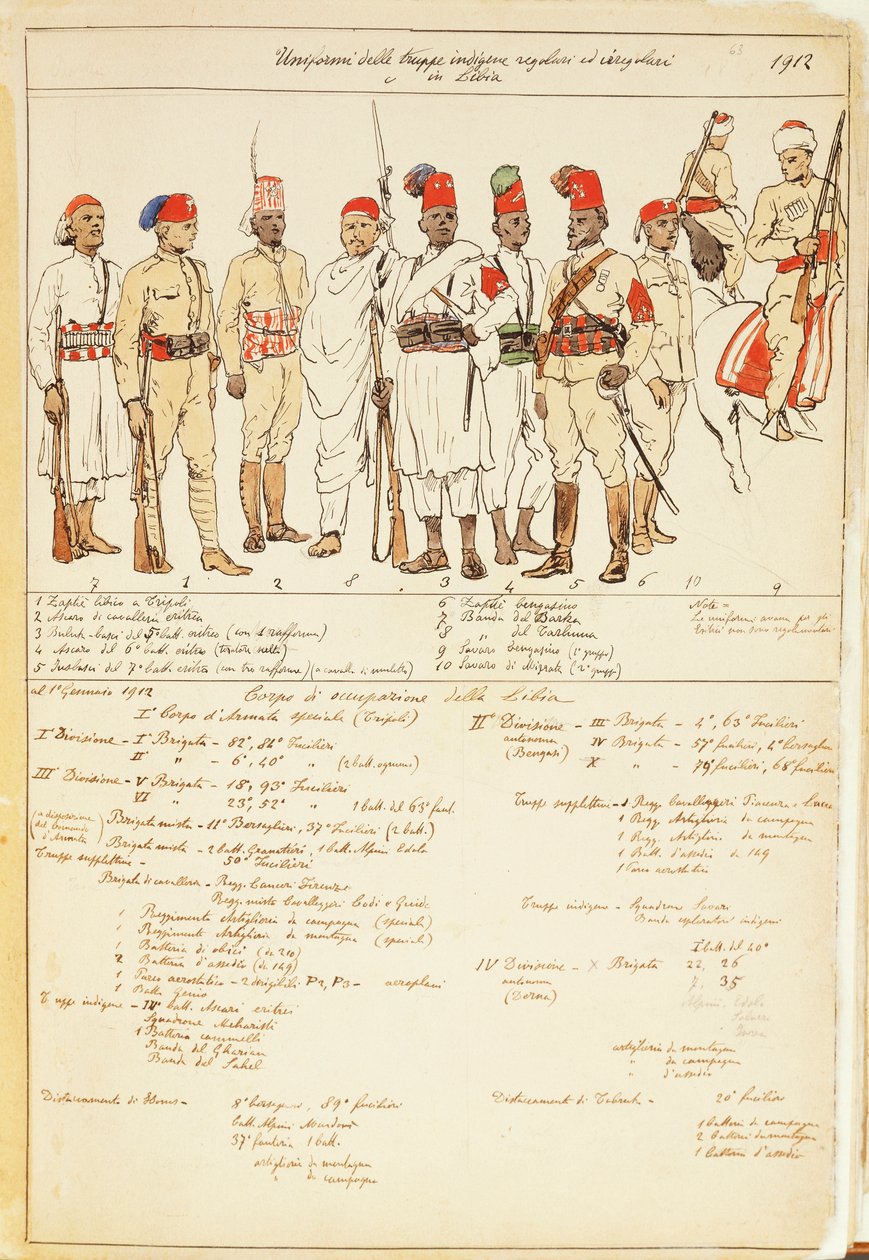 63
Uniformi delle truppe indigene regolari ed irregolari
in Libia
1912
7 1 2 8 3 4 5 6 10 9
1 Zaptiè libico a Tripoli
2 Ascaro di cavalleria eritrea
3 Buluk-basci del 5° batt. eritreo (con 1 rafferma)
4 Ascaro del 6° batt. eritreo (tiratore scelto)
5 Jusbasci del 7° batt. eritreo (con tre rafferme) (a cavallo di muletto)
6 Zaptiè bengasino
7 Banda del Barka
8 " del Tarhuna
9 Savaro bengasino (1° gruppo)
10 Savaro di Misrata (2° gruppo)
Note =
Le uniformi per gli
Eritrei non sono regolamentari
al 1° Gennaio 1912
Corpo di occupazione della Libia
I° Corpo d'Armata speciale (Tripoli)
Iª Divisione - Iª Brigata - 82°, 84° Fucilieri
IIª " - 6°, 40° " (2 batt. ognuno)
IIIª Divisione - V Brigata - 18°, 93° Fucilieri
VI " 23°, 52° " 1 batt. del 63° fant.
(a disposizione
del Comando
d'Armata)
Brigata mista - 11° Bersaglieri, 37° Fucilieri (2 batt.)
Brigata mista - 2 batt. Granatieri, 1 batt. Alpini Edolo
50° Fucilieri
Truppe supplettive -
Brigata di cavalleria - Regg. Lancieri Firenze
Regg. misto Cavalleggeri Lodi e Guide
1 Reggimento Artiglieria da campagna (speciale)
1 Reggimento Artiglieria da montagna (speciale)
1 Batteria di obici (da 210)
2 Batterie d'assedio (da 149)
1 Parco aerostatico - 2 dirigibili P2, P3 - aeroplani
1 Batt. Genio
Truppe indigene - IV° batt. Ascari eritrei
Squadrone Meharisti
1 Batteria cammelli
Banda del Gharian
Banda del Sahel
Distaccamento di Homs -
8° bersaglieri, 89° fucilieri
batt. Alpini Mondovì
37° fanteria 1 batt.
artiglieria da montagna
" da campagna
IIª Divisione - III Brigata - 4°, 63° Fucilieri
autonoma
(Bengasi)
IV Brigata - 57° fucilieri, 4° bersaglieri
X " - 79° fucilieri, 68° fucilieri
Truppe supplettive - 1 Regg. Cavalleggeri Piacenza e Lucca
1 Regg. Artiglieria da campagna
1 Regg. Artiglieria da montagna
1 Batt. d'assedio da 149
1 Parco aerostatico
Truppe indigene - Squadrone Savari
Banda esploratori indigeni
I batt. del 40°
IV Divisione - X Brigata 22, 26
autonoma
(Derna)
7, 35
Alpini Edolo
Saluzzo
Ivrea
artiglieria da montagna
" da campagna
" d'assedio
Distaccamento di Tobruk -
20° fucilieri
1 batteria da campagna
2 batterie da montagna
1 batteria d'assedio